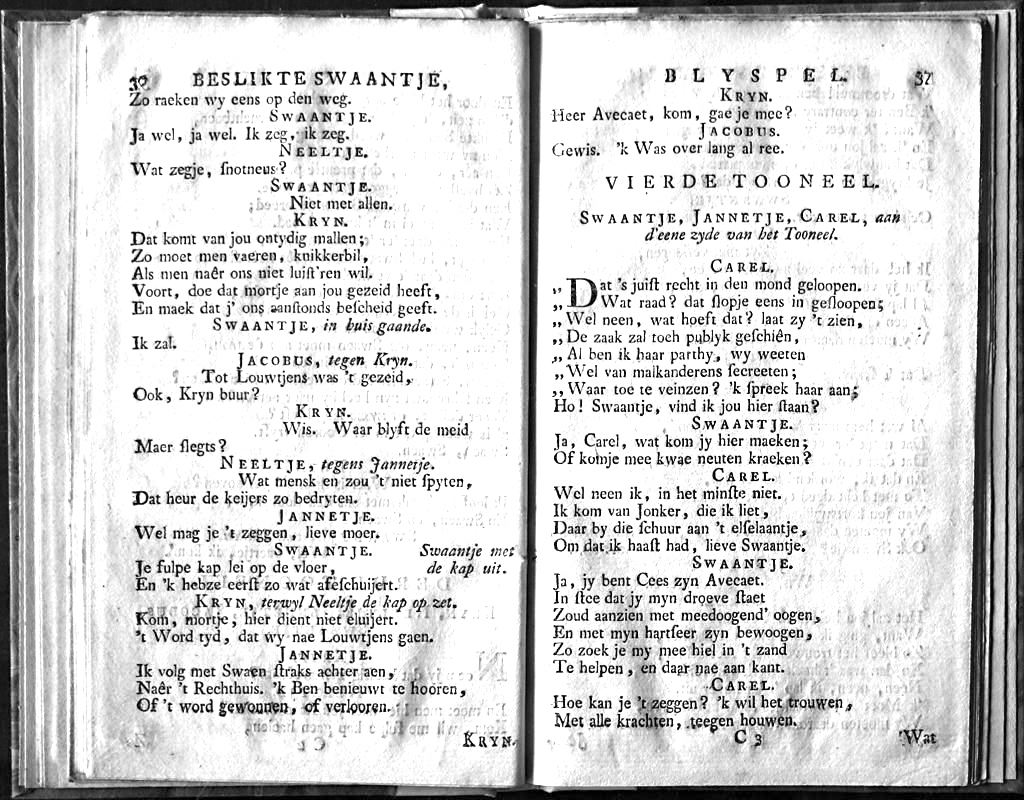 30 BESLIKTE SWAANTJE,
Zo raeken wy eens op den weg.
SWAANTJE.
Ja wel, ja wel. Ik zeg, ik zeg.
NEELTJE.
Wat zegje, ſnotneus?
SWAANTJE.
Niet met allen.
KRYN.
Dat komt van jou ontydig mallen;
Zo moet men vaeren, knikkerbil,
Als men naêr ons niet luiſt'ren wil.
Voort, doe dat mortje aan jou gezeid heeft,
En maek dat j' ons aanſtonds beſcheid geeft.
SWAANTJE, in huis gaande.
Ik zal.
JACOBUS, tegen Kryn.
Tot Louwtjens was 't gezeid,
Ook, Kryn buur?
KRYN.
Wis. Waar blyft de meid
Maer ſlegts?
NEELTJE, tegens Jannetje.
Wat mensk en zou 't niet ſpyten,
Dat heur de keijers zo bedryten.
JANNETJE.
Wel mag je 't zeggen, lieve moer.
SWAANTJE. Swaantje met
Je fulpe kap lei op de vloer, de kap uit.
En 'k hebze eerſt zo wat afeſchuijert.
KRYN, terwyl Neeltje de kap op zet.
Kom, mortje, hier dient niet eluijert.
't Word tyd, dat wy nae Louwtjens gaen.
JANNETJE.
Ik volg met Swaen ſtraks achter aen,
Naêr 't Rechthuis. 'k Ben benieuwt te hooren,
Of 't word gewonnen, of verlooren.
KRYN.
BLYSPEL. 37
KRYN.
Heer Avecaet, kom, gae je mee?
JACOBUS.
Gewis. 'k Was over lang al ree.
VIERDE TOONEEL.
SWAANTJE, JANNETJE, CAREL, aan
d'eene zyde van het Tooneel.
CAREL.
„ Dat 's juiſt recht in den mond geloopen.
„ Wat raad? dat ſlopje eens in geſloopen;
„ Wel neen, wat hoeft dat? laat zy 't zien,
„ De zaak zal toch publyk geſchiên,
„ Al ben ik haar parthy, wy weeten
„ Wel van malkanderens ſecreeten;
„ Waar toe te veinzen? 'k ſpreek haar aan;
Ho! Swaantje, vind ik jou hier ſtaan?
SWAANTJE.
Ja, Carel, wat kom jy hier maeken;
Of komje mee kwae neuten kraeken?
CAREL.
Wel neen ik, in het minſte niet.
Ik kom van Jonker, die ik liet,
Daar by die ſchuur aan 't elſelaantje,
Om dat ik haaſt had, lieve Swaantje.
SWAANTJE.
Ja, jy bent Cees zyn Avecaet.
In ſtee dat jy myn droeve ſtaet
Zoud aanzien met meedoogend' oogen,
En met myn hartſeer zyn bewoogen,
Zo zoek je my mee hiel in 't zand
Te helpen, en daar nae aan kant.
CAREL.
Hoe kan je 't zeggen? 'k wil het trouwen,
Met alle krachten, teegen houwen.
C 3 Wat